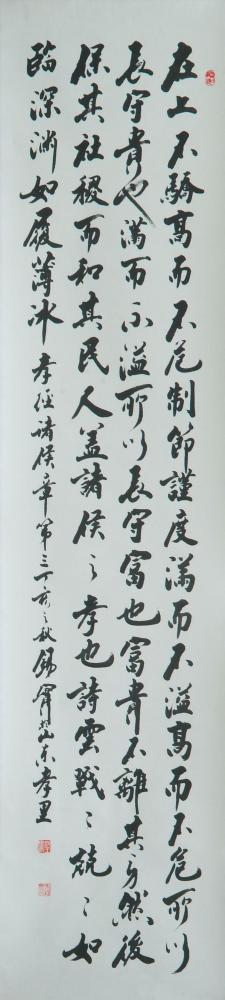 在上不驕高而不危制節謹度滿而不溢高而不危所以
長守貴也滿而不溢所以長守富也富貴不離其身然後
保其社稷而和其民人蓋諸侯之孝也詩雲戰々兢々如
臨深淵如履薄冰 孝經諸侯章第三丁亥之秋錫孝里